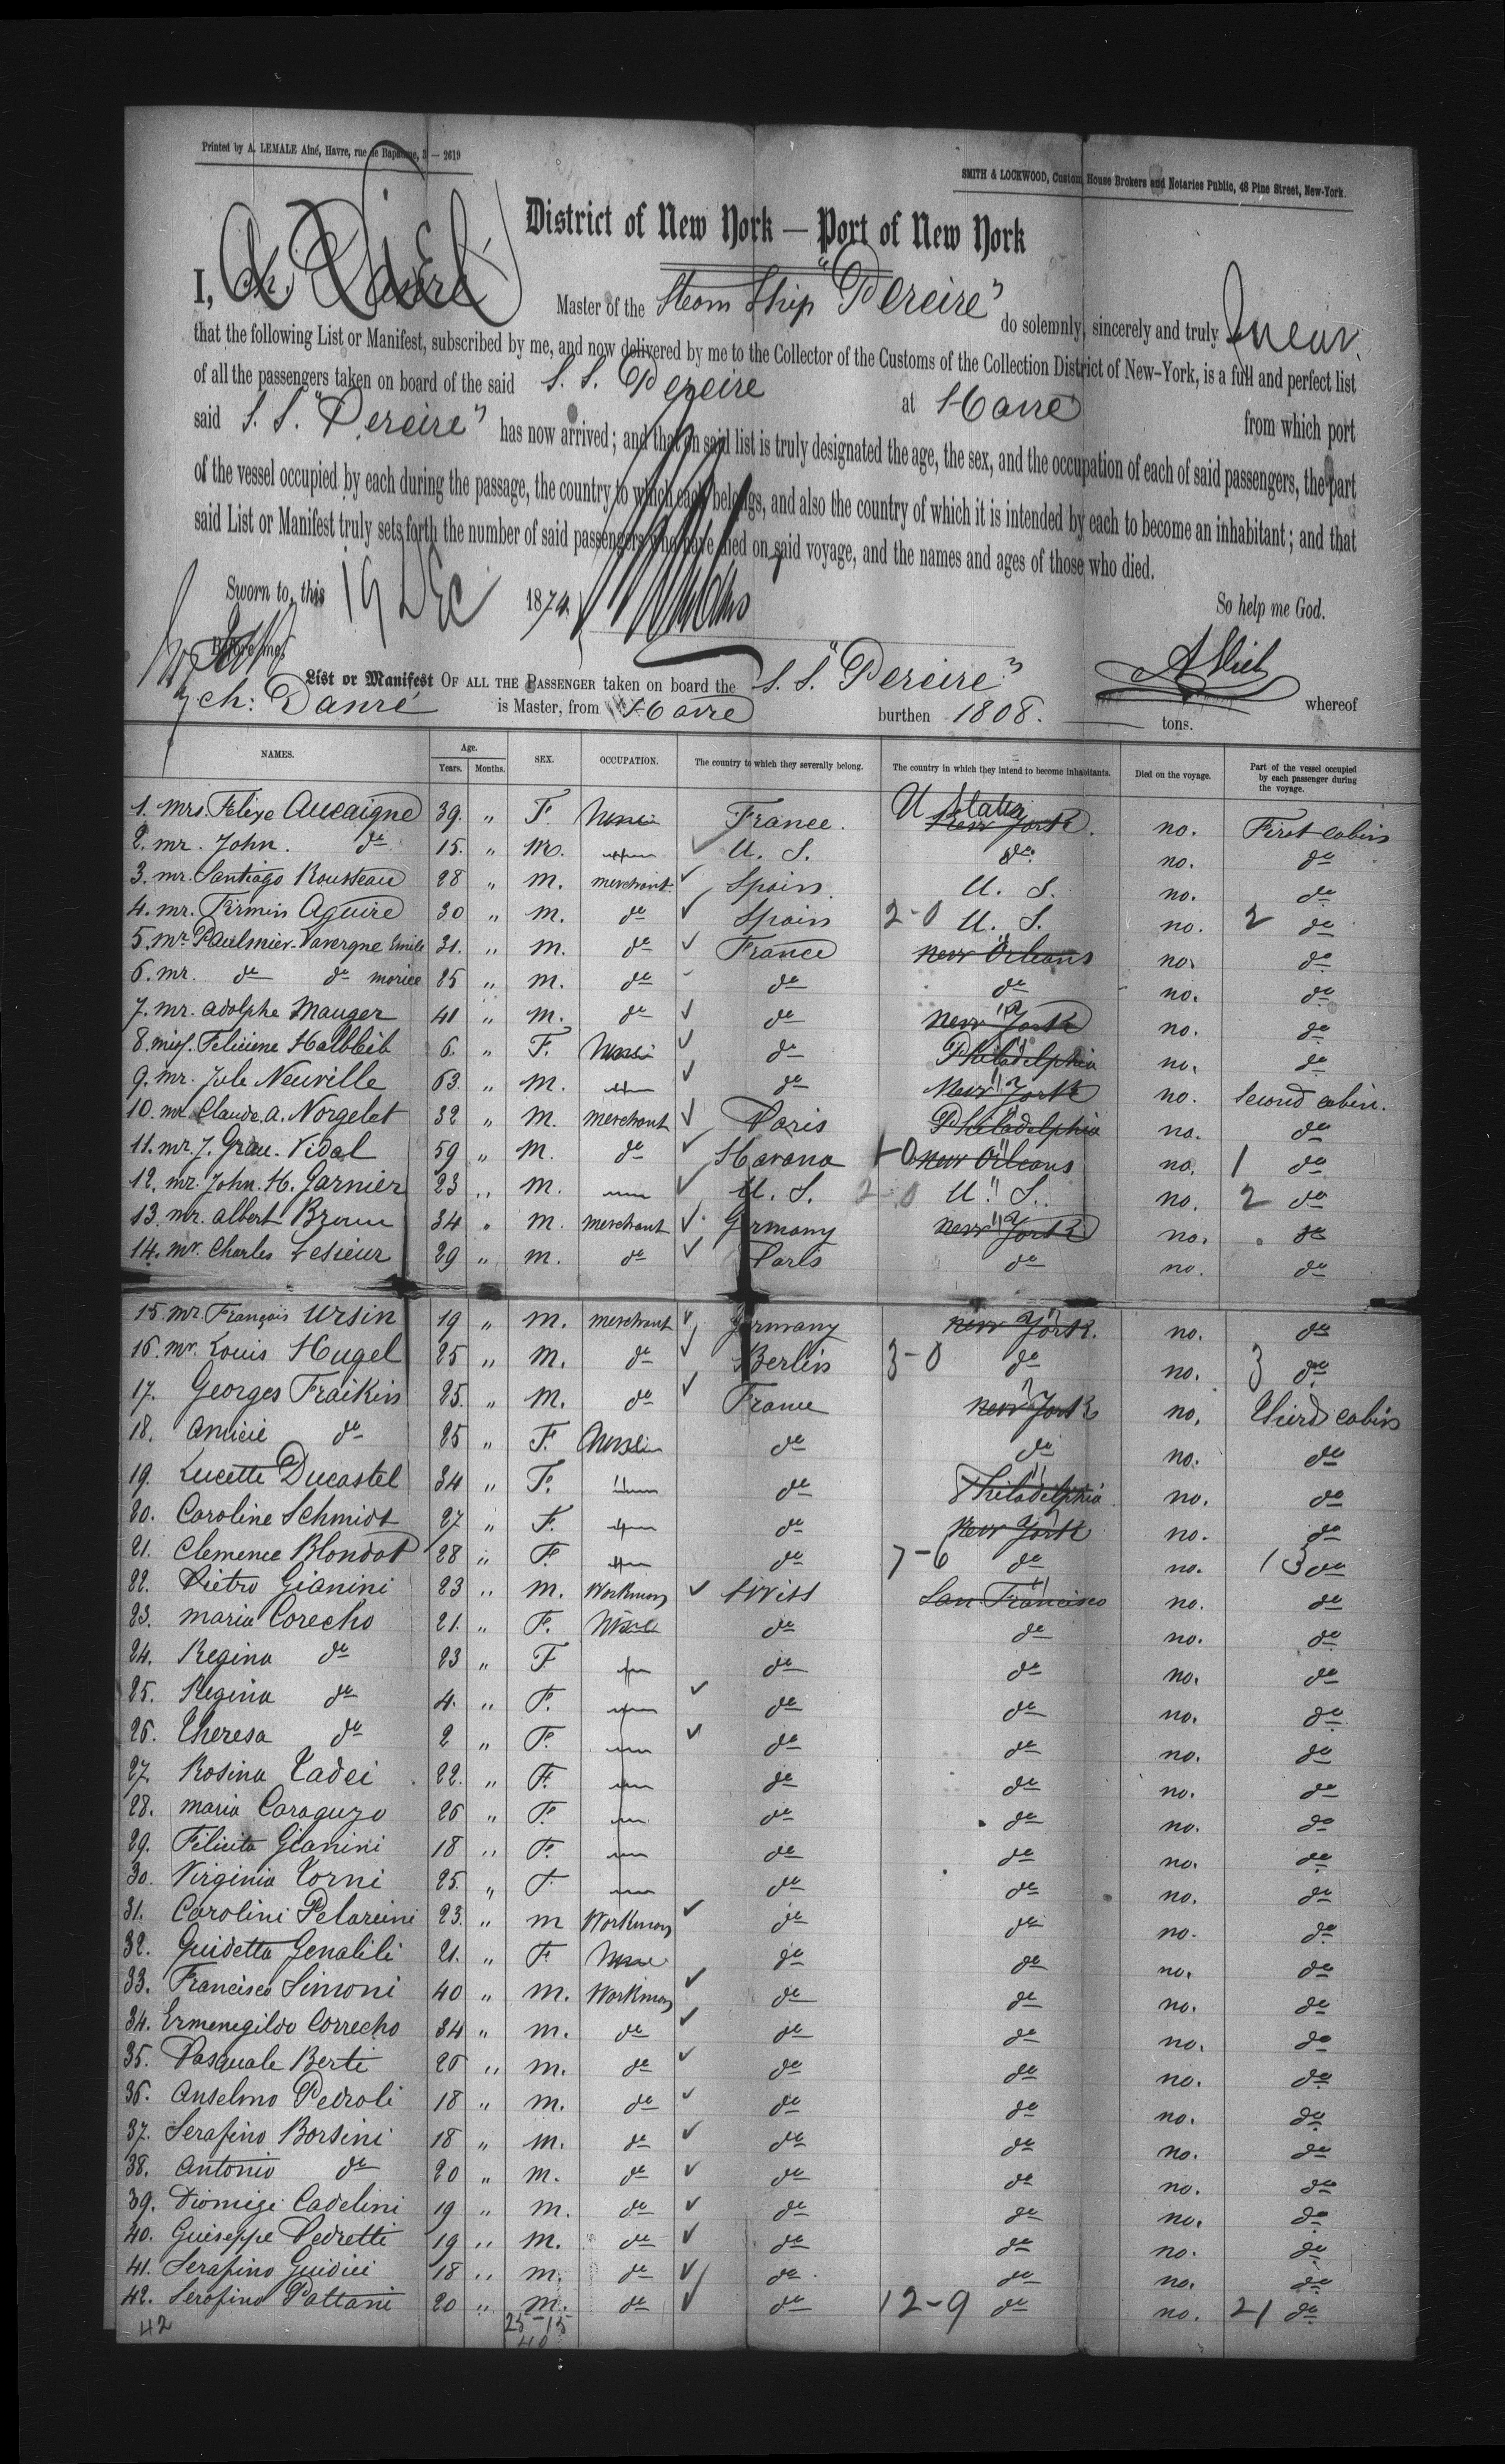 Printed by A. LEMALE Aîné, Havre, rue de Bapaume, 3 — 2619
SMITH & LOCKWOOD, Custom House Brokers and Notaries Public, 48 Pine Street, New-York.
District of New York — Port of New York
I, Master of the Steam Ship "Pereire" do solemnly, sincerely and truly swear
that the following List or Manifest, subscribed by me, and now delivered by me to the Collector of the Customs of the Collection District of New-York, is a full and perfect list
of all the passengers taken on board of the said S. S. Pereire at Havre from which port
said S. S. "Pereire" has now arrived; and that on said list is truly designated the age, the sex, and the occupation of each of said passengers, the part
of the vessel occupied by each during the passage, the country to which each belongs, and also the country of which it is intended by each to become an inhabitant; and that
said List or Manifest truly sets forth the number of said passengers who have died on said voyage, and the names and ages of those who died.
Sworn to, this 19 Dec 1874. So help me God.
Before me,
List or Manifest OF ALL THE PASSENGER taken on board the S. S. "Pereire" whereof
ch: Danré is Master, from Havre burthen 1808. tons.
NAMES. Age. Years. Months. SEX. OCCUPATION. The country to which they severally belong. The country in which they intend to become inhabitants. Died on the voyage. Part of the vessel occupied by each passenger during the voyage.
1. Mrs. Felixe Aucaigne 39. " F. None France. U States New York. no. First cabin
2. mr. John. do 15. " m. " U. S. do no. do
3. mr. Santiago Rousseau 28 " m. merchant Spain U. S. no. do
4. mr. Firmin Aguire 30 " m. do Spain 2-0 U. S. no. 2 do
5. mr. Paulmier-Lavergne Emile 31. " m. do France New Orleans no. do
6. mr. do do morice 25 " m. do do do no. do
7. mr. adolphe Mauger 41 " m. do do New York no. do
8. miss. Feliciene Halbleib 6. " F. None do Philadelphia no. do
9. mr. Jule Neuville 63. " m. " do New York no. Second cabin.
10. mr. Claude. A. Norgelet 32 " m. merchant Paris Philadelphia no. do
11. mr. J. Grau. Vidal 59 " m. do Havana 1-0 New Orleans no. 1 do
12. mr. John. H. Garnier 23 " m. " U. S. 2-0 U. S. no. 2 do
13. mr. albert Brown 34 " m. merchant Germany New York no. do
14. mr. Charles Lesieur 29 " m. do Paris do no. do
15. mr. François Ursin 19 " m. merchant Germany New York. no. do
16. mr. Louis Hugel 25 " m. do Berlin 3-0 do no. 3 do
17. Georges Fraikin 25. " m. do France New York no. Third cabin
18. Amicie do 25 " F. None do do no. do
19. Lucette Ducastel 34 " F. " do Philadelphia no. do
20. Caroline Schmidt 27 " F. " do New York no. do
21. Clemence Blondot 28 " F. " do 7-6 do no. 13 do
22. Pietro Gianini 23 " m. Workman Swiss San Francisco no. do
23. maria Corecho 21. " F. None do do no. do
24. Regina do 23 " F " do do no. do
25. Regina do 4. " F. " do do no. do
26. Theresa do 2 " F. " do do no. do
27. Rosina Tadei 22. " F. " do do no. do
28. maria Caraguzo 26 " F. " do do no. do
29. Filicita Gianini 18 " F. " do do no. do
30. Virginia Torni 25. " F. " do do no. do
31. Carolini Pelareini 23. " m Workman do do no. do
32. Guidetta Genalili 21. " F None do do no. do
33. Francisco Simoni 40 " m. Workman do do no. do
34. Ermenegildo Correcho 34 " m. do do do no. do
35. Pasquale Berti 26 " m. do do do no. do
36. Anselmo Pedroli 18 " m. do do do no. do
37. Serafino Borsini 18 " m. do do do no. do
38. Antonio do 20 " m. do do do no. do
39. Diomige Cadelini 19 " m. do do do no. do
40. Guiseppe Pedretti 19 " m. do do do no. do
41. Serafino Guidici 18 " m. do do do no. do
42. Serafino Pattani 20 " m. do do 12-9 do no. 21 do
42 25-15
40